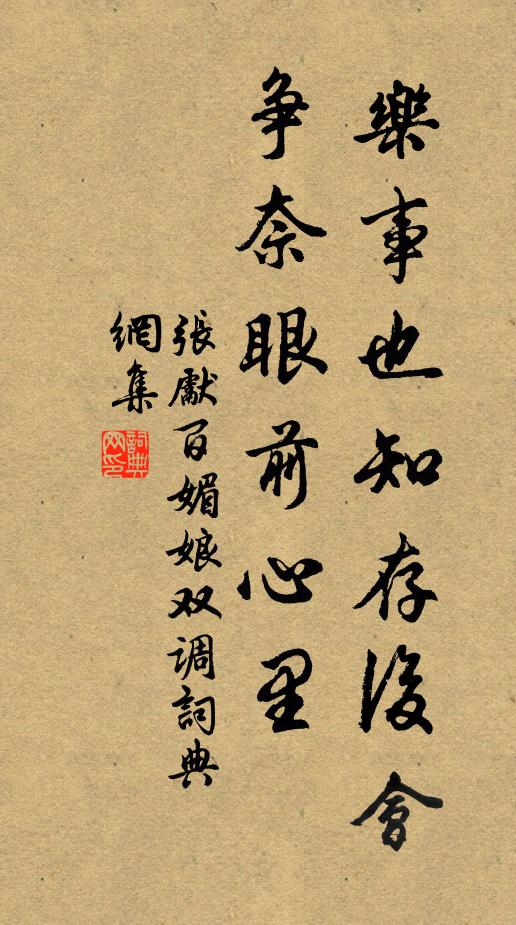 樂事也知存後會
争奈眼前心里
張獻百媚娘双调詞典
網集
詞典网印